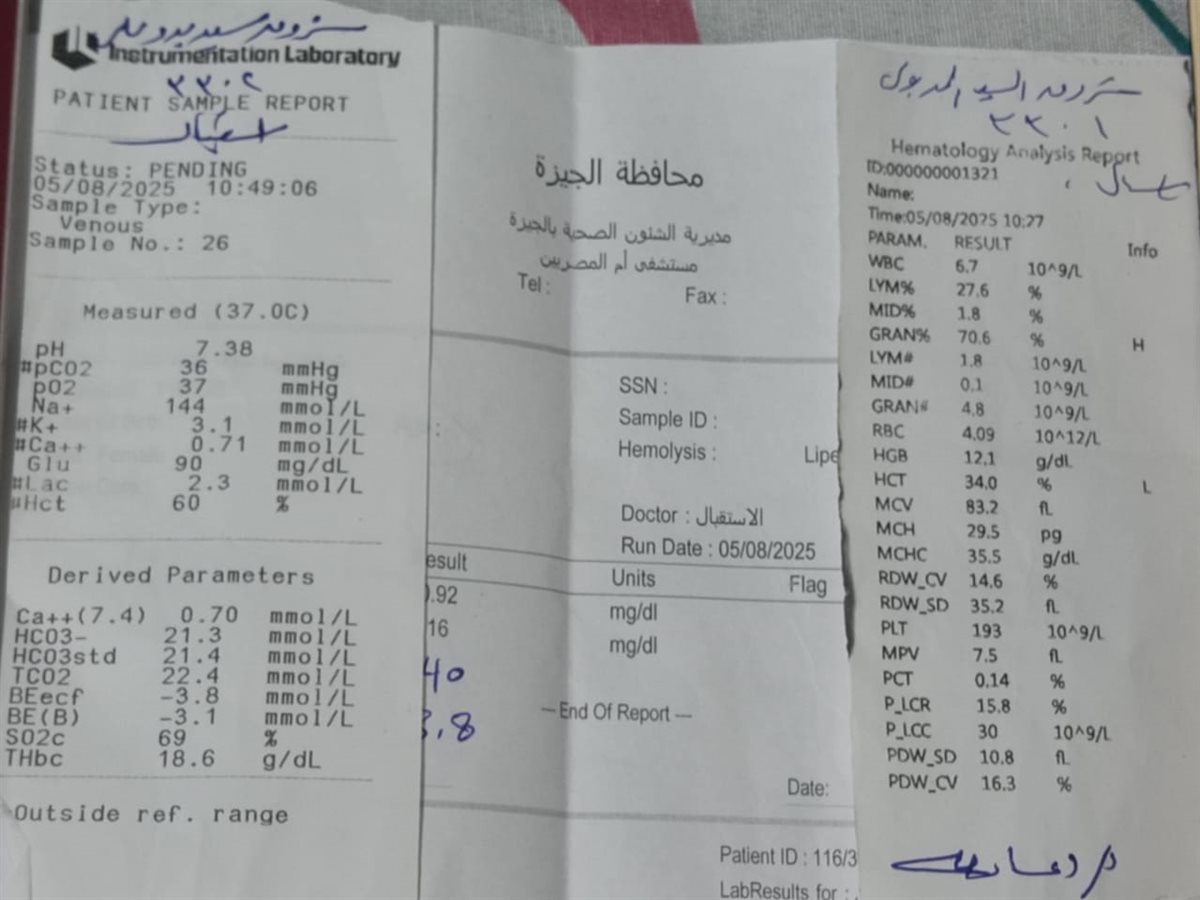 Instrumentation Laboratory
٣٣٠٢
PATIENT SAMPLE REPORT
استقبال
Status: PENDING
05/08/2025 10:49:06
Sample Type:
Venous
Sample No.: 26
Measured (37.0C)
pH 7.38
#pCO2 36 mmHg
pO2 37 mmHg
Na+ 144 mmol/L
#K+ 3.1 mmol/L
#Ca++ 0.71 mmol/L
Glu 90 mg/dL
#Lac 2.3 mmol/L
#Hct 60 %
Derived Parameters
Ca++(7.4) 0.70 mmol/L
HCO3- 21.3 mmol/L
HCO3std 21.4 mmol/L
TCO2 22.4 mmol/L
BEecf -3.8 mmol/L
BE(B) -3.1 mmol/L
SO2c 69 %
THbc 18.6 g/dL
Outside ref. range
محافظة الجيزة
مديرية الشئون الصحية بالجيزة
مستشفى أم المصريين
Tel : Fax :
SSN :
Sample ID :
: Hemolysis : Lipe
Doctor : الاستقبال
Run Date : 05/08/2025
esult Units Flag
0.92 mg/dl
16 mg/dl
40
3.8
--- End Of Report ---
Date:
Patient ID : 116/3
LabResults for :
السيد
٣٣٠١
Hematology Analysis Report
ID:000000001321
Name:
Time:05/08/2025 10:27
PARAM. RESULT Info
WBC 6.7 10^9/L
LYM% 27.6 %
MID% 1.8 %
GRAN% 70.6 % H
LYM# 1.8 10^9/L
MID# 0.1 10^9/L
GRAN# 4.8 10^9/L
RBC 4.09 10^12/L
HGB 12.1 g/dL
HCT 34.0 % L
MCV 83.2 fL
MCH 29.5 pg
MCHC 35.5 g/dL
RDW_CV 14.6 %
RDW_SD 35.2 fL
PLT 193 10^9/L
MPV 7.5 fL
PCT 0.14 %
P_LCR 15.8 %
P_LCC 30 10^9/L
PDW_SD 10.8 fL
PDW_CV 16.3 %